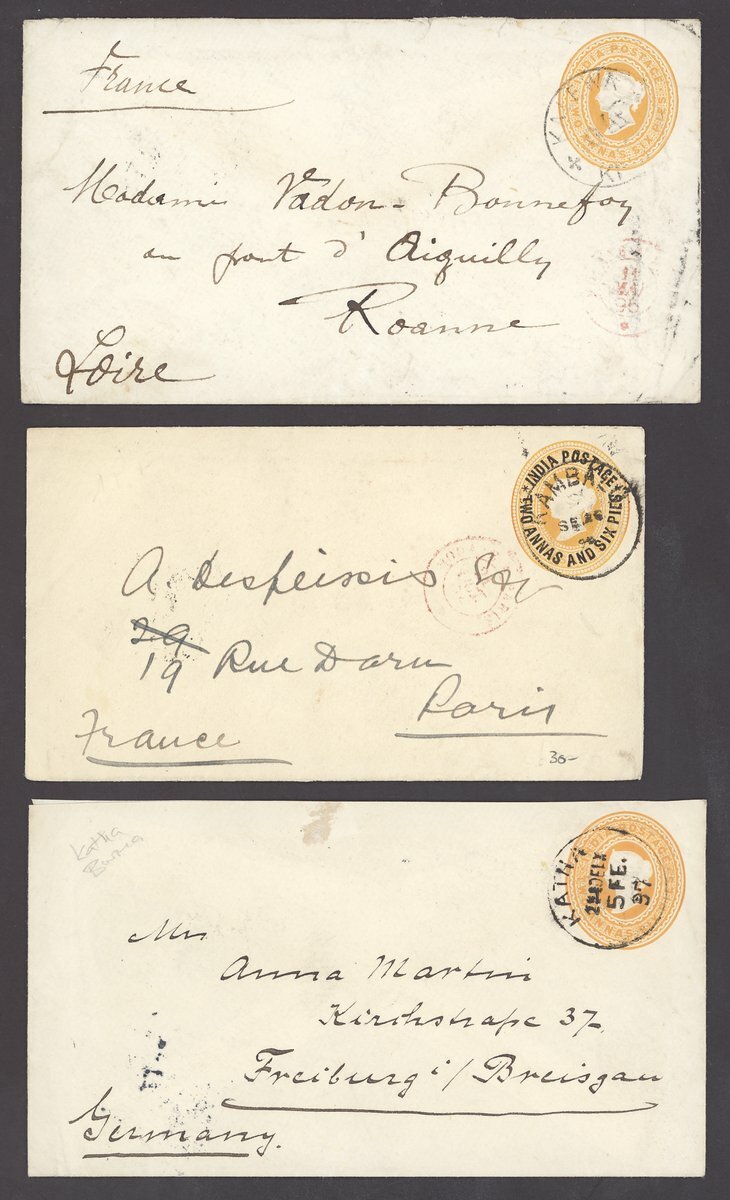 France
INDIA POSTAGE
Madame Vadon-Bonnefoy
au pont d' Aiguilly
Roanne
Loire
INDIA POSTAGE
TWO ANNAS AND SIX PIES
KAMBA
SE 26
A. Despeissis Esq
29
19 Rue Daru
Paris
France
30-
Katha
Burma
KATHA
2ND DELY
5 FE.
97
Mrs
Anna Martin
Kirchstraße 37
Freiburg i/Breisgau
Germany.